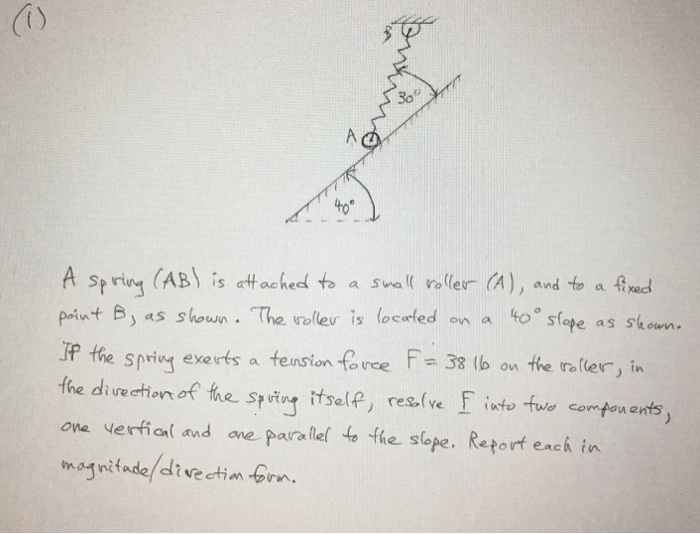 (1)
B
30°
A
40°
A spring (AB) is attached to a small roller (A), and to a fixed
point B, as shown. The roller is located on a 40° slope as shown.
If the spring exerts a tension force F = 38 lb on the roller, in
the direction of the spring itself, resolve F into two components,
one vertical and one parallel to the slope. Report each in
magnitude/direction form.